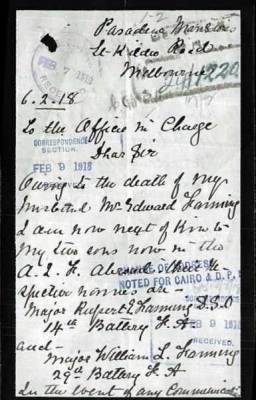 Pasadena Mansions
St Kilda Road
Melbourne
FEB 7 1918
RECEIVED
6.2.18
To the Officer in Charge
CORRESPONDENCE
SECTION.
FEB 9 1918
Dear Sir
Owing to the death of my
husband Mr Edward Fanning
I am now next of kin to
my two sons now in the
A.I.F. Abroad their re
spective names are -
NOTED FOR CAIRO & D.P.
Major Rupert E Fanning D.S.O
14th Battery F.A
FEB 9 1918
RECEIVED.
and -
Major William L. Fanning
29th Battery F.A
In the event of any Communicat